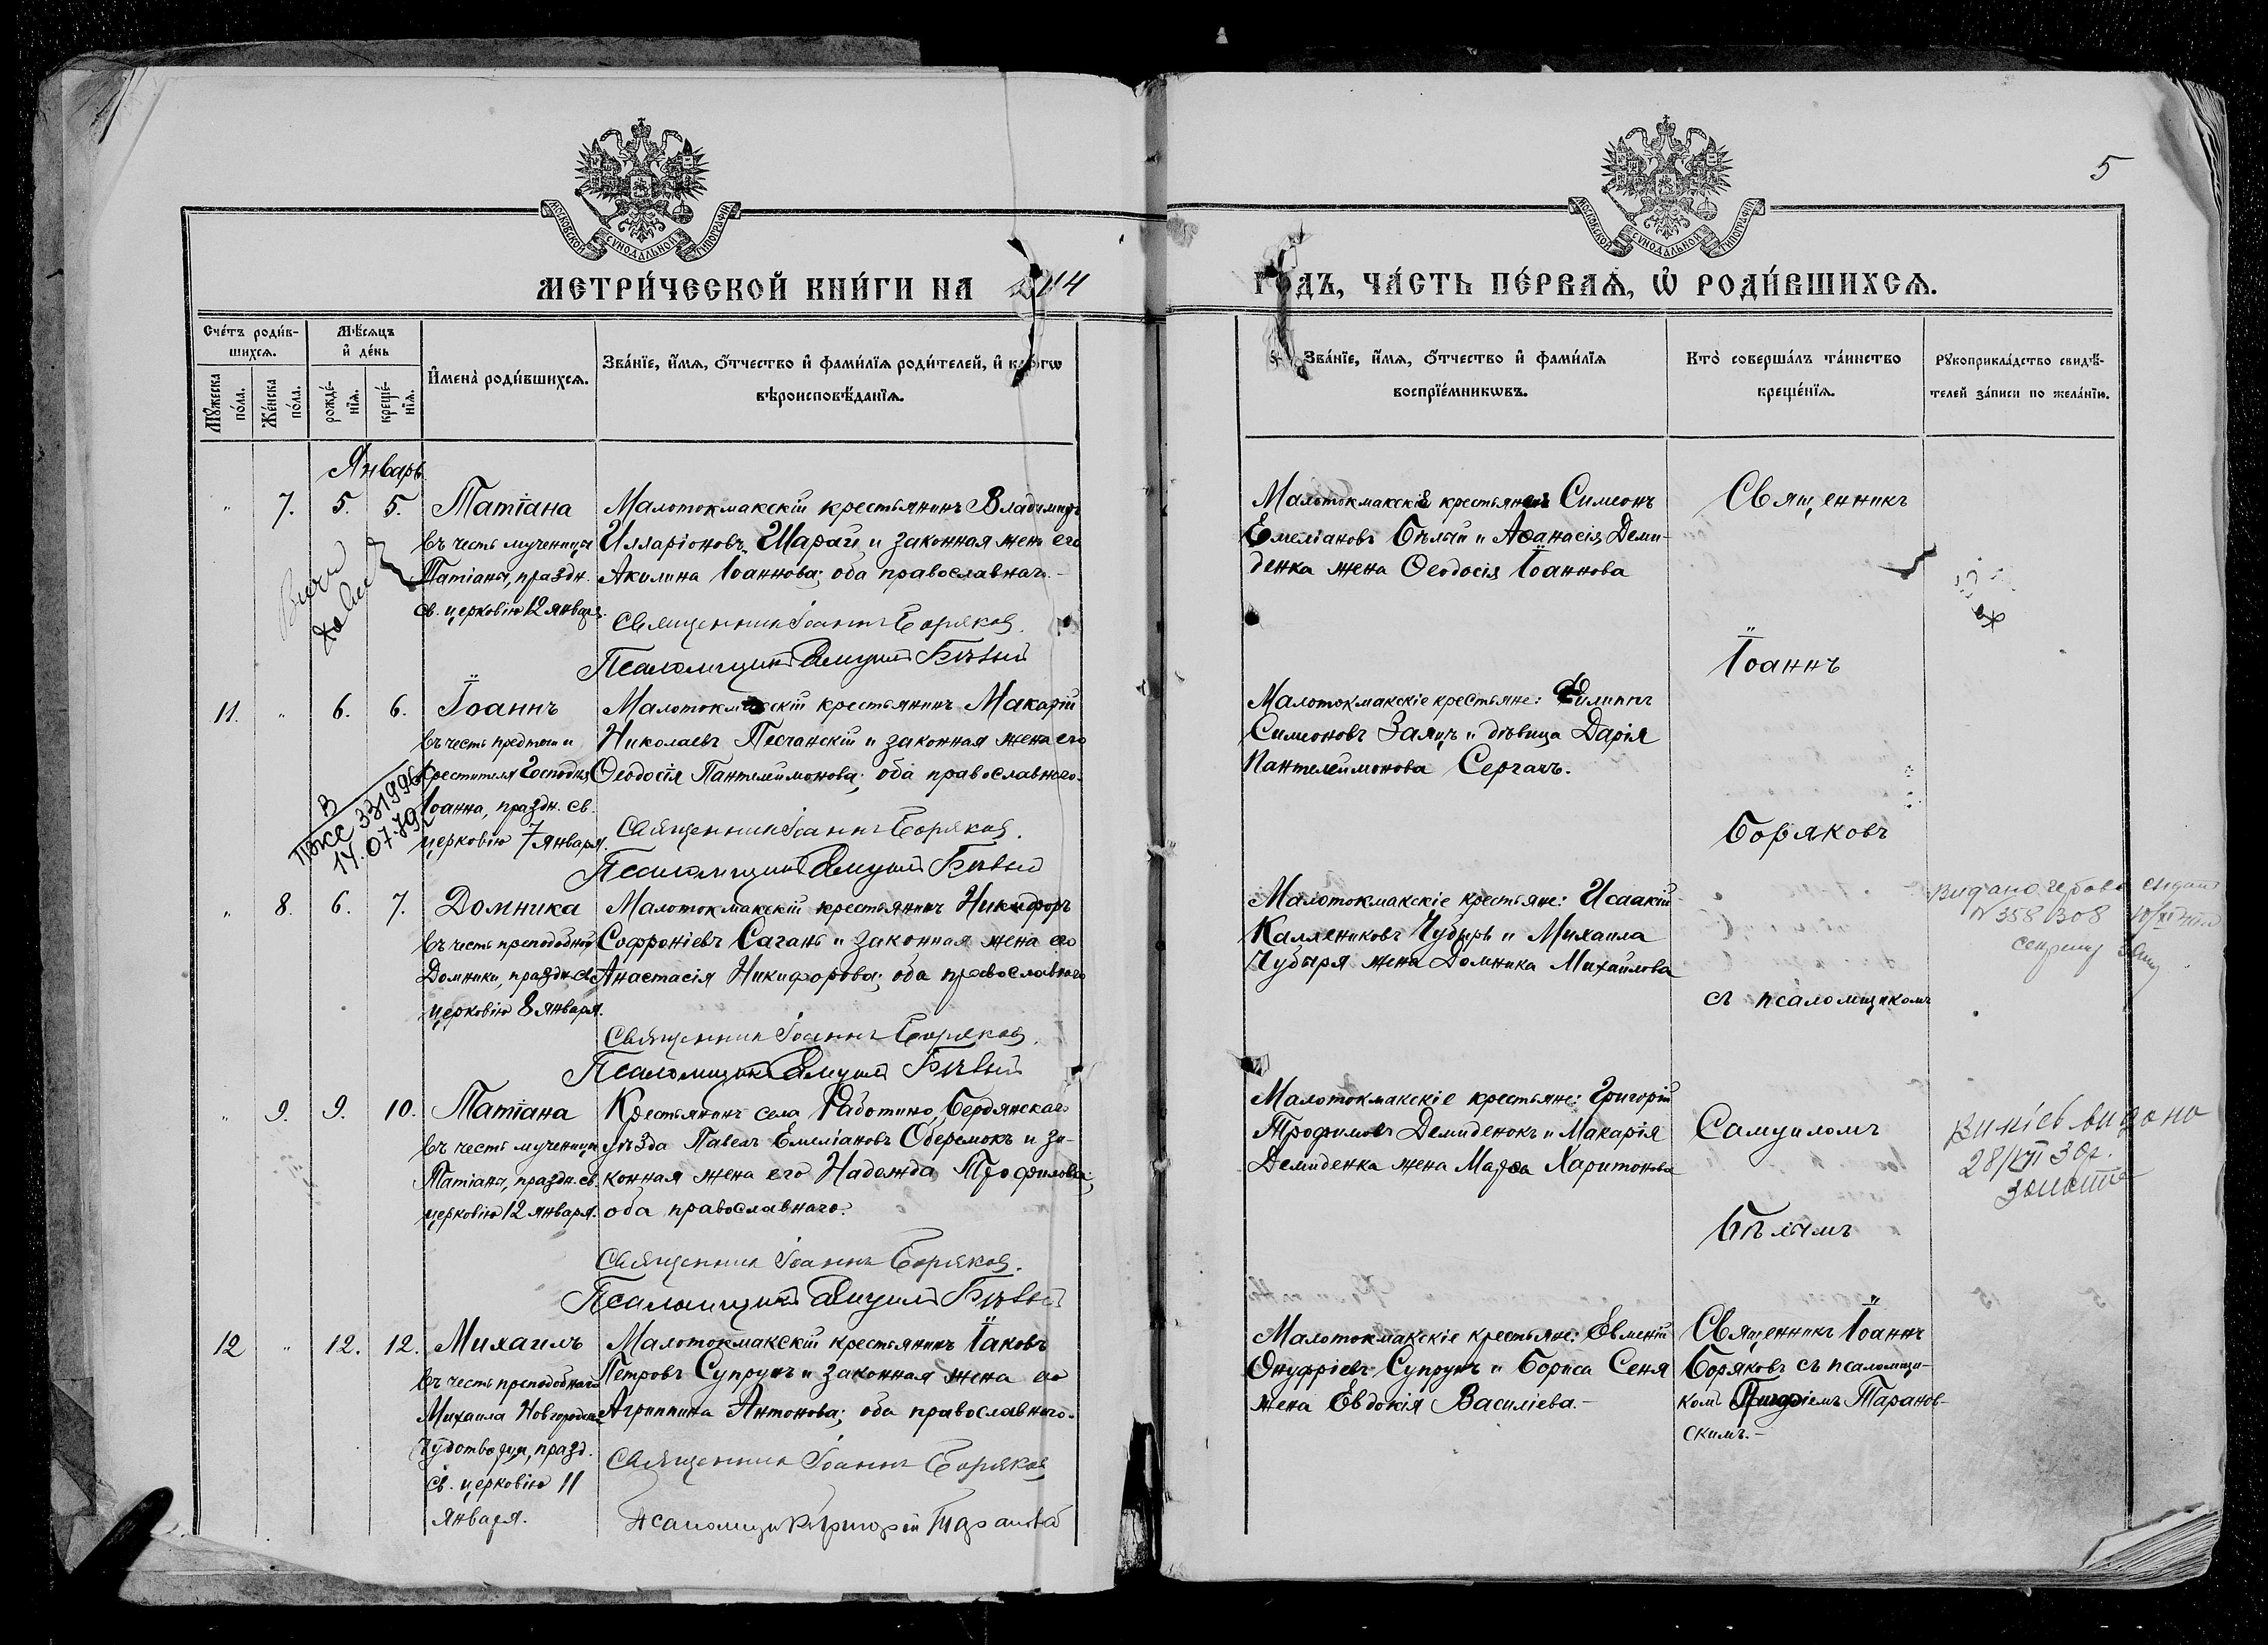 5
МОСКОВСКОЙ СѴНОДАЛЬНОЙ ТИПОГРАФІИ
МОСКОВСКОЙ СѴНОДАЛЬНОЙ ТИПОГРАФІИ
МЕТРИ́ЧЕСКОЙ КНИ́ГИ НА 1914
ГО́ДЪ, ЧА́СТЬ ПЕ́РВАѦ, Ѽ РОДИ́ВШИХСѦ.
Сче́тъ роди́в-
шихсѧ.
Мѣ́сѧцъ
и҆ де́нь
Мꙋ́жеска по́ла.
Же́нска по́ла.
рожде́-
нїѧ.
креще́-
нїѧ.
И҆мена̀ роди́вшихсѧ.
Зва́нїе, и҆́мѧ, ѻ҆́тчество и҆ фами́лїѧ роди́телей, и҆ како́гѡ
вѣроисповѣ́данїѧ.
Зва́нїе, и҆́мѧ, ѻ҆́тчество и҆ фами́лїѧ
воспрїе́мникѡвъ.
Кто̀ соверша́лъ та́инство
креще́нїѧ.
Рꙋкоприкла́дство свидѣ́-
телей за́писи по жела́нїю.
Январь
" 7. 5. 5. Татіана
въ честь мученицы
Татіаны, праздн.
св. церковію 12 января.
Малотокмакскій крестьянинъ Владиміръ
Илларіоновъ Шарай и законная жена его
Акилина Іоаннова; оба православнаго.-
Священникъ Іоаннъ Боряковъ.
Псаломщикъ Самуилъ Бѣлый
Малотокмакскіе крестьяне Симеонъ
Емеліановъ Бѣлый и Аѳанасія Деми-
денка жена Ѳеодосія Іоаннова
Священникъ
Іоаннъ
11. " 6. 6. Іоаннъ
въ честь предтечи и
крестителя Господня
Іоанна, праздн. св.
церковію 7 января.
331996
14.07.79
Малотокмакскій крестьянинъ Макарій
Николаевъ Песчанскій и законная жена его
Ѳеодосія Пантелеимонова; оба православнаго.
Священникъ Іоаннъ Боряковъ.
Псаломщикъ Самуилъ Бѣлый
Малотокмакскіе крестьяне: Филиппъ
Симеоновъ Заяцъ и дѣвица Дарія
Пантелеимонова Сергачъ.
Боряковъ
" 8. 6. 7. Домника
въ честь преподобной
Домники, праздн. св.
церковію 8 января.
Малотокмакскій крестьянинъ Никифоръ
Софроніевъ Сагань и законная жена его
Анастасія Никифорова; оба православнаго
Священникъ Іоаннъ Боряковъ.
Псаломщикъ Самуилъ Бѣлый
Малотокмакскіе крестьяне: Исаакій
Каллениковъ Чубырь и Михаила
Чубыря жена Домника Михаилова
съ псаломщикомъ
N 358308
" 9. 9. 10. Татіана
въ честь мученицы
Татіаны, праздн. св.
церковію 12 января.
Крестьянинъ села Работино, Бердянскаго
уѣзда Павелъ Емеліановъ Оберемокъ и за-
конная жена его Надежда Трофимова;
оба православнаго.
Священникъ Іоаннъ Боряковъ.
Псаломщикъ Самуилъ Бѣлый
Малотокмакскіе крестьяне: Григорій
Трофимовъ Демиденокъ и Макарія
Демиденка жена Марѳа Харитонова
Самуиломъ
Бѣлымъ
12 " 12. 12. Михаилъ
въ честь преподобнаго
Михаила Новгородскаго
чудотворца, празд.
св. церковію 11
января.
Малотокмакскій крестьянинъ Іаковъ
Петровъ Супрунъ и законная жена его
Агриппина Антонова; оба православнаго.
Священникъ Іоаннъ Боряковъ
Псаломщикъ Григорій
Малотокмакскіе крестьяне: Евменій
Онуфріевъ Супрунъ и Бориса Сеня
жена Евдокія Василіева.-
Священникъ Іоаннъ
Боряковъ съ псаломщи-
комъ Таранов-
скимъ.-